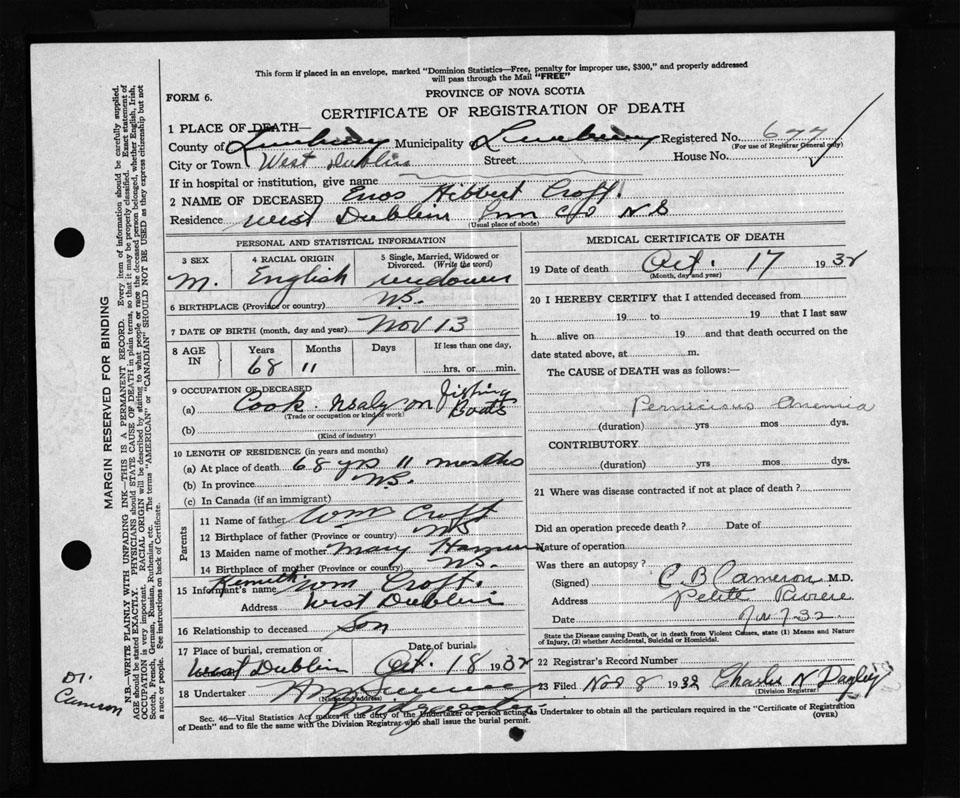 This form if placed in an envelope, marked "Dominion Statistics—Free, penalty for improper use, $300," and properly addressed
will pass through the Mail "FREE"
PROVINCE OF NOVA SCOTIA
FORM 6.
CERTIFICATE OF REGISTRATION OF DEATH
1 PLACE OF DEATH—
County of Lunenburg Municipality Lunenburg Registered No. 677
(For use of Registrar General only)
City or Town West Dublin Street House No.
If in hospital or institution, give name
2 NAME OF DECEASED Enos Hibbert Croft.
Residence West Dublin Lun Co N S
(Usual place of abode)
PERSONAL AND STATISTICAL INFORMATION
3 SEX 4 RACIAL ORIGIN 5 Single, Married, Widowed or Divorced. (Write the word)
M. English widower
6 BIRTHPLACE (Province or country) N.S.
7 DATE OF BIRTH (month, day and year) Nov 13
8 AGE IN Years Months Days If less than one day,
68 11 hrs. or min.
9 OCCUPATION OF DECEASED
(a) Cook on fishing Boats
(Trade or occupation or kind of work)
(b)
(Kind of industry)
10 LENGTH OF RESIDENCE (in years and months)
(a) At place of death 68 yrs 11 months
(b) In province N.S.
(c) In Canada (if an immigrant)
Parents
11 Name of father Wm Croft
12 Birthplace of father (Province or country) NS
13 Maiden name of mother Mary
14 Birthplace of mother (Province or country) NS.
15 Informant's name Kenneth Wm Croft.
Address West Dublin
16 Relationship to deceased Son
17 Place of burial, cremation or Date of burial.
West Dublin Oct. 18 1932
18 Undertaker
(Name and address)
Bridgewater
MEDICAL CERTIFICATE OF DEATH
19 Date of death Oct. 17 1932
(Month, day and year)
20 I HEREBY CERTIFY that I attended deceased from
19 to 19 that I last saw
h alive on 19 and that death occurred on
date stated above, at m.
The CAUSE of DEATH was as follows:—
Pernicious Anemia
(duration) yrs mos dys.
CONTRIBUTORY
(duration) yrs mos dys.
21 Where was disease contracted if not at place of death?
Did an operation precede death? Date of
Nature of operation
Was there an autopsy?
(Signed) C B Cameron M.D.
Address Petite Riviere
Date Nov 7 32
State the Disease causing Death, or in death from Violent Causes, state (1) Means and Nature
of Injury, (2) whether Accidental, Suicidal or Homicidal.
22 Registrar's Record Number
23 Filed Nov 8 1932 Charles N
(Division Registrar)
Sec. 46—Vital Statistics Act makes it the duty of the Undertaker or person acting as Undertaker to obtain all the particulars required in the "Certificate of Registration
of Death" and to file the same with the Division Registrar who shall issue the burial permit. (OVER)
MARGIN RESERVED FOR BINDING
N.B.—WRITE PLAINLY WITH UNFADING INK—THIS IS A PERMANENT RECORD. Every item of information should be carefully supplied.
AGE should be stated EXACTLY. PHYSICIANS should STATE CAUSE OF DEATH in plain terms, so that it may be properly classified. Exact statement of
OCCUPATION is very important. RACIAL ORIGIN will be described by stating to what people or race the deceased person belonged, whether English, Irish,
Scotch, French, German, Russian, Ruthenian, etc. The terms "AMERICAN" or "CANADIAN" SHOULD NOT BE USED as they express citizenship but not
a race or people. See instructions on back of Certificate.
Dr.
Cameron